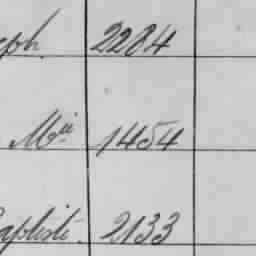 eph. 2284
Mie 1454
aptiste. 2133